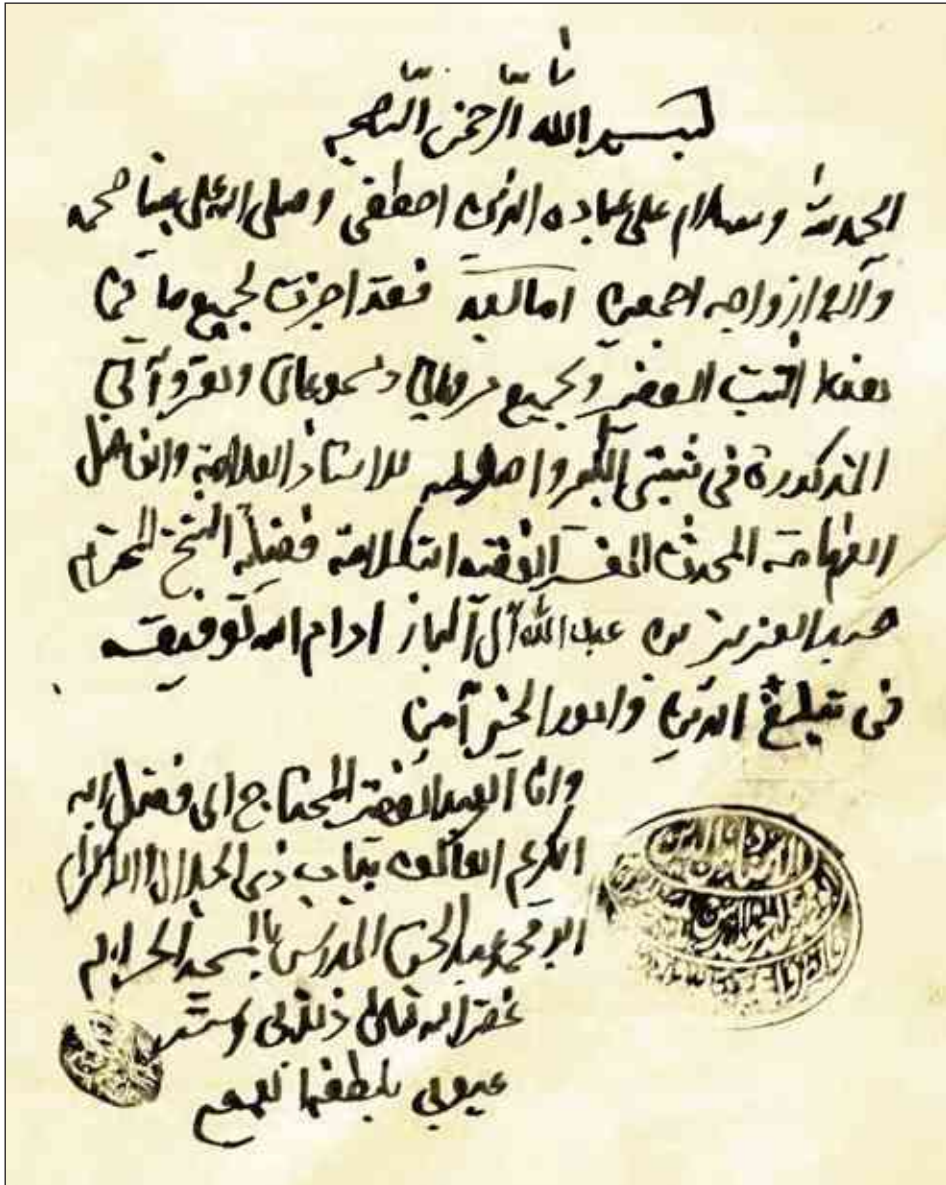 بسم الله الرحمن الرحيم
الحمد لله وسلام على عباده الذين اصطفى وصلى الله على نبينا محمد
وآله وازواجه اجمعين اما بعد فقد اجزت بجميع ما في
هذا الثبت الصغير وبجميع مروياتي ومسموعاتي ومقروآتي
المذكورة في ثبتي الكبير واصوله للاستاذ العلامة والفاضل
الفهامة المحدث المفسر الفقيه فضيلة الشيخ المحترم
عبد العزيز بن عبد الله آل الباز ادام الله توفيقه
في تبليغ الدين وامور الخير آمين
وانا العبد الفقير المحتاج الى فضل الله
الكريم العاكف بباب ذي الجلال والاكرام
ابو محمد عبد الحق المدرس بالمسجد الحرام
غفر الله تعالى ذنوبي وستر
عيوبي بلطفه